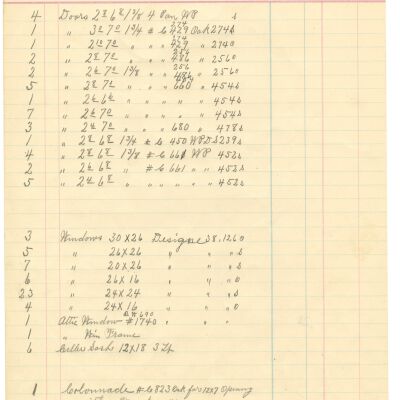 4 Doors 2 8 6 8 1 3/8 4 Pan WP s
1 " 3 0 7 0 1 3/4 # 6 429 Oak 274 s
1 " 2 10 7 0 " " 429 " 2740
2 " 2 8 7 0 " " 486 " 2560
2 " 2 6 7 0 1 3/8 " 486 " 2560
5 " 2 8 7 0 " " 660 " 454 s
1 " 2 6 6 8 " " " " 454 s
7 " 2 6 7 0 " " " " 454 s
3 " 2 6 7 0 " " 680 " 478 s
1 " 2 8 6 8 1 3/4 # 6 450 WP D S 239 s
4 " 2 8 6 8 1 3/8 # 6 661 WP 452 s
2 " 2 6 6 8 " # 6 661 " " 452 s
5 " 2 4 6 8 " " " " " 452 s
3 Windows 30 x 26 Designe 38.1260
5 " 26 x 26 " " " s
7 " 20 x 26 " " " s
6 " 26 x 16 " " " s
23 " 24 x 24 " " " s
4 " 24 x 16 " " " s
1 Attic Window #1740 " " "
1 " Win Frame
6 Celler Sash 12 x 18 3 Lt
1 Colonnade # 6823 Oak for 12 x 7 Opening